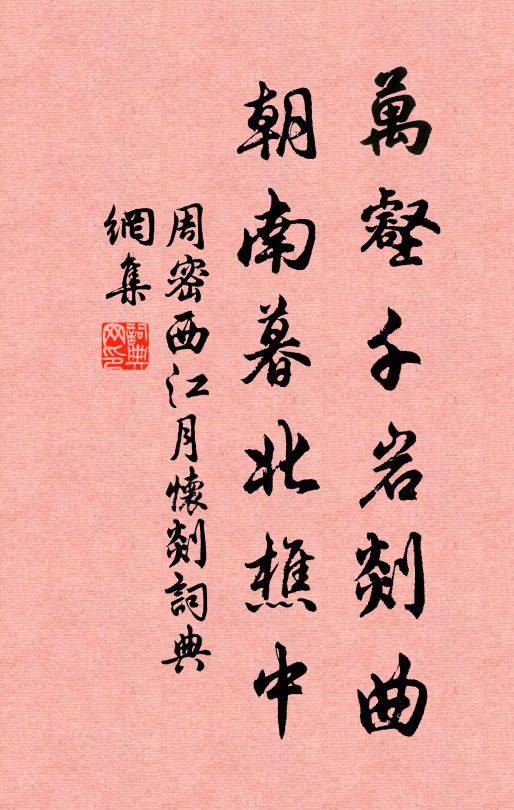 萬壑千岩剡曲
朝南暮北樵中
周密西江月懷剡詞典
網集
詞典網印